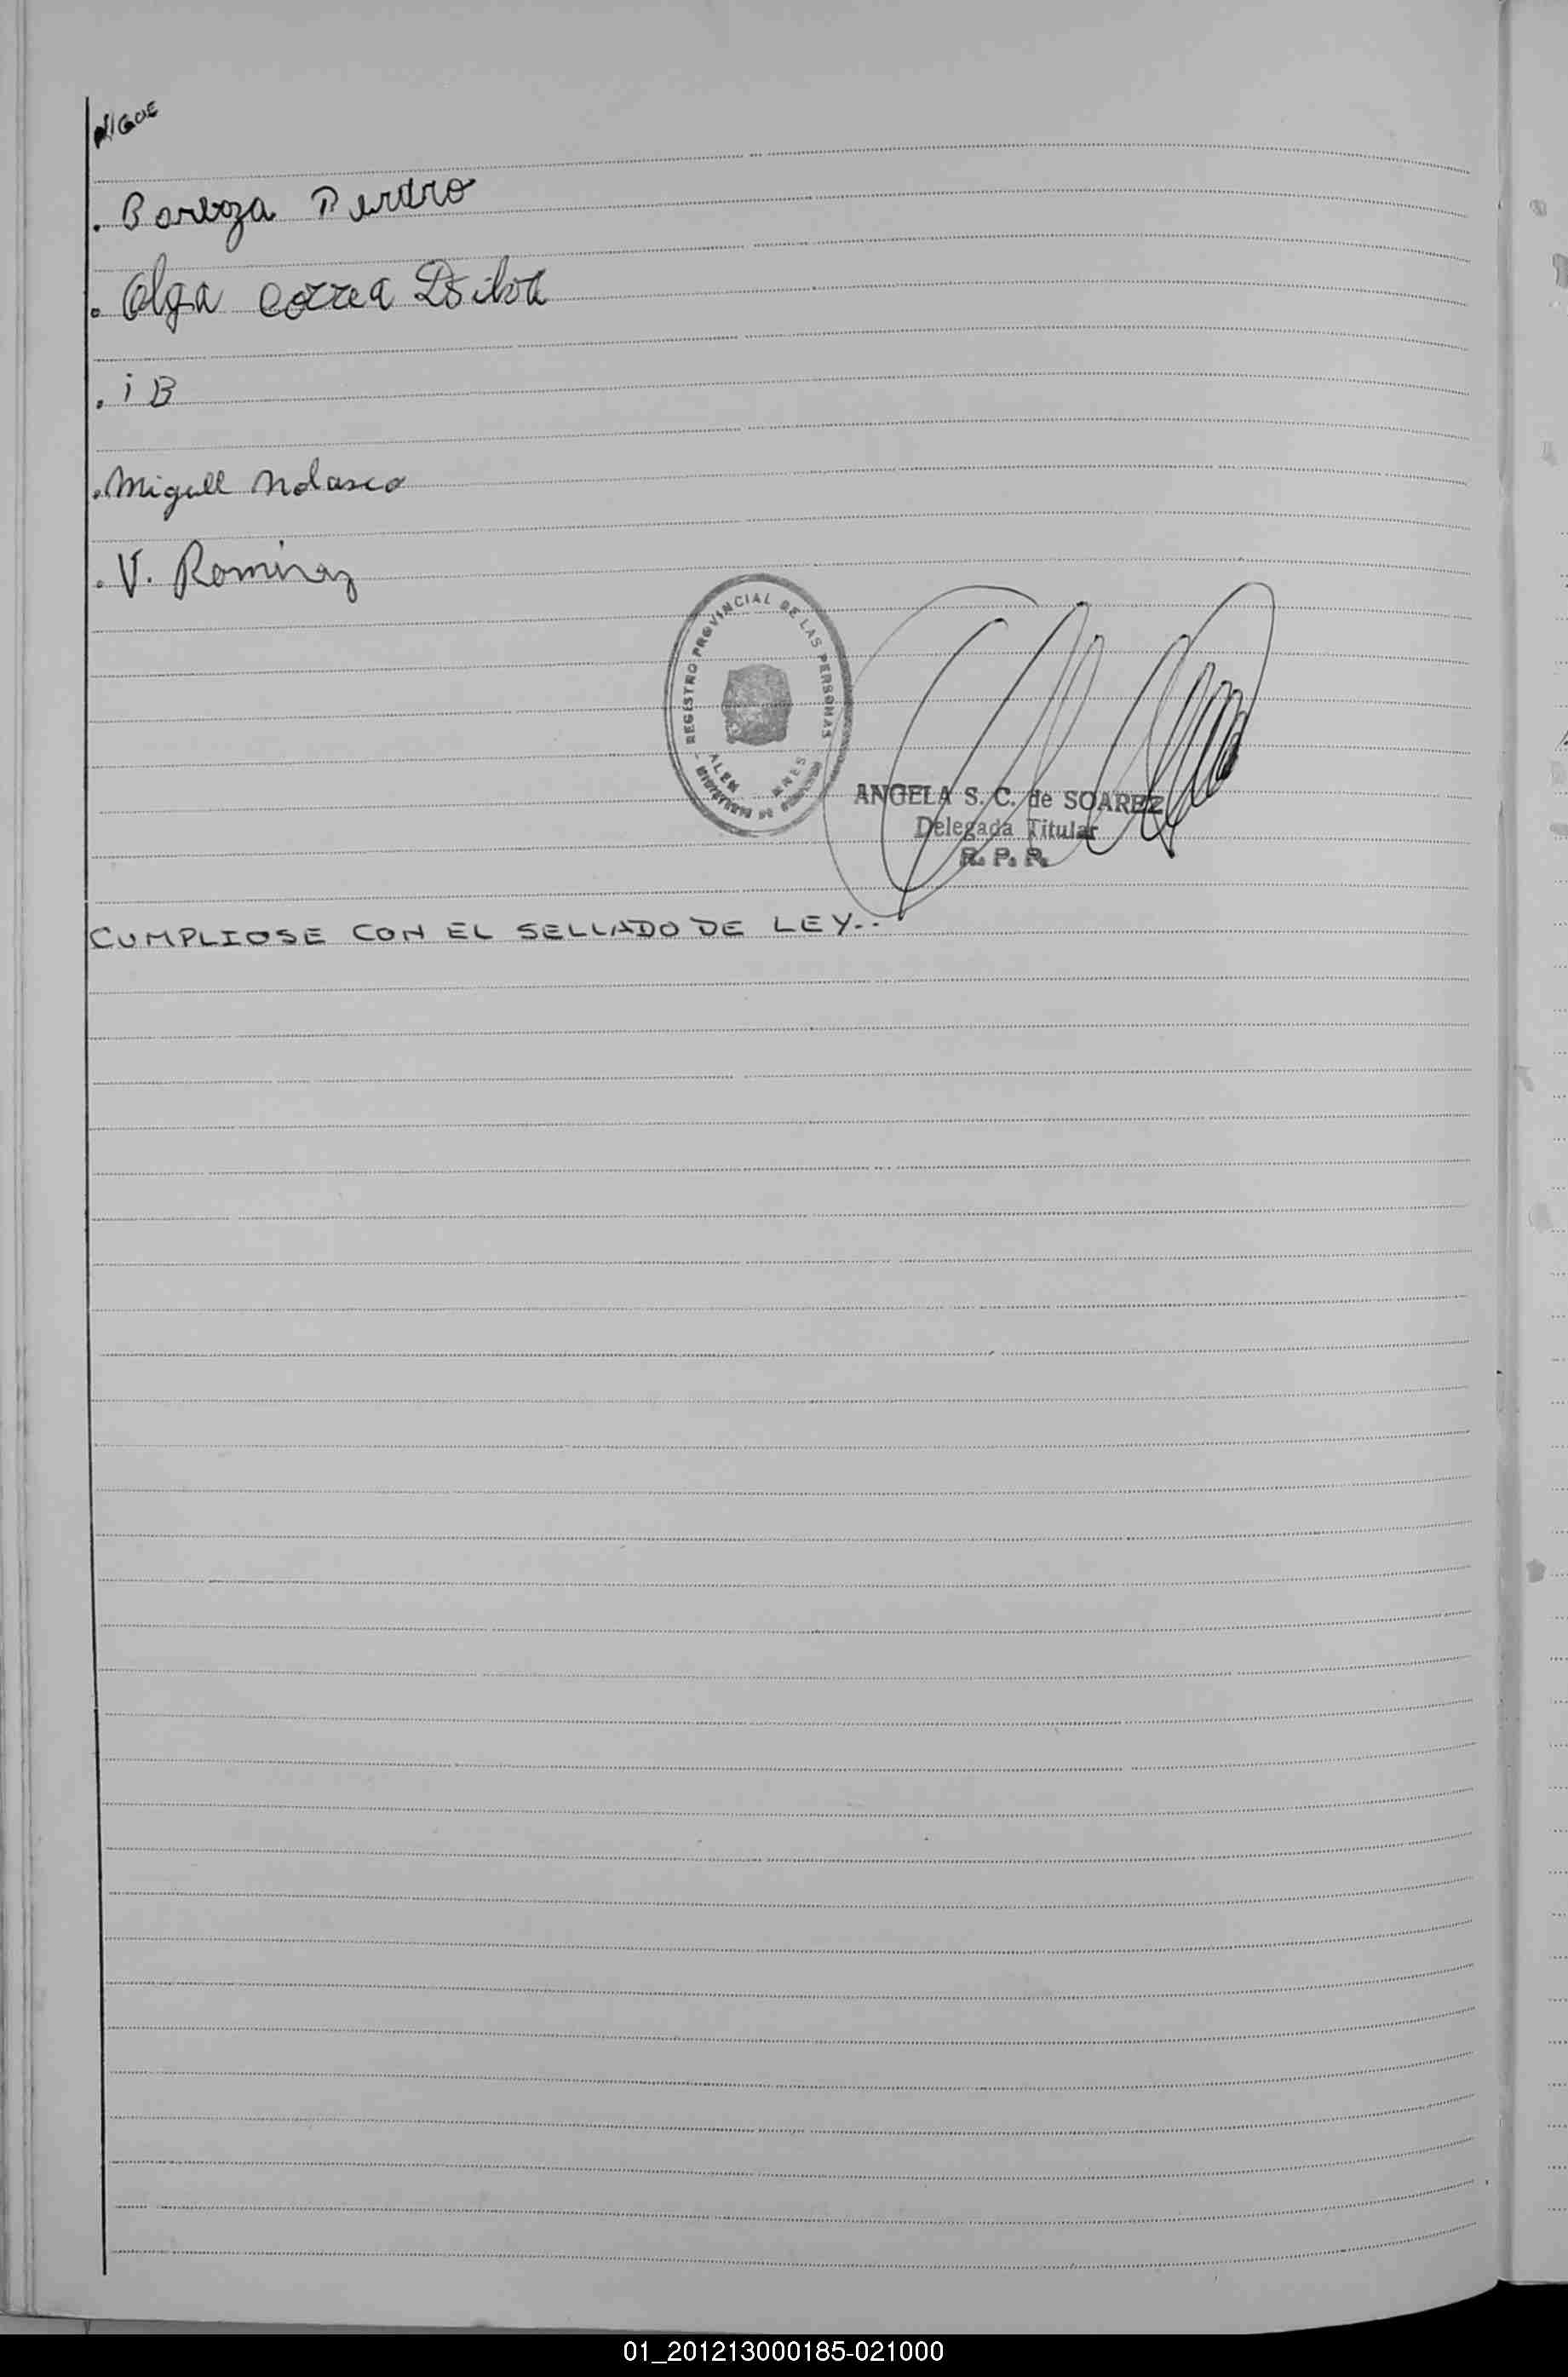 SIGUE
. Barboza Perdro
. Olga Correa Dsilva
. i B
. Miguel Nolasco
. V. Ramirez
REGISTRO PROVINCIAL DE LAS PERSONAS
ALEM MNES
ANGELA S. C. de SOAREZ
Delegada Titular
R. P. P.
CUMPLIOSE CON EL SELLADO DE LEY..
01_201213000185-021000